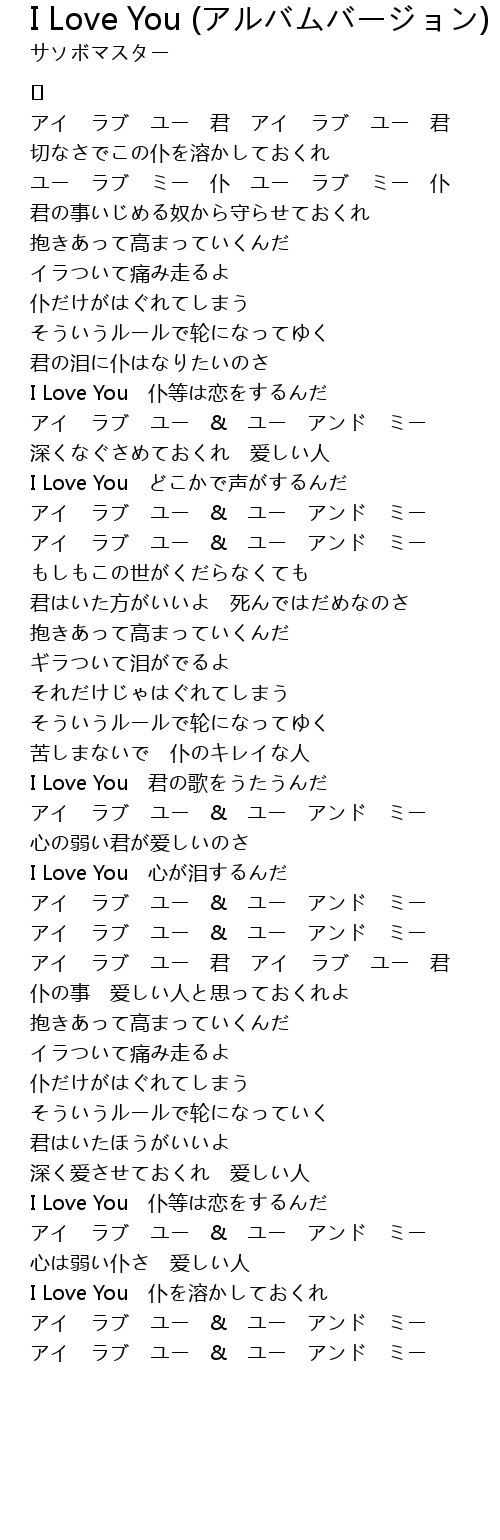 I Love You (アルバムバージョン)
サソボマスター
アイ　ラブ　ユー　君　アイ　ラブ　ユー　君
切なさでこの仆を溶かしておくれ
ユー　ラブ　ミー　仆　ユー　ラブ　ミー　仆
君の事いじめる奴から守らせておくれ
抱きあって高まっていくんだ
イラついて痛み走るよ
仆だけがはぐれてしまう
そういうルールで轮になってゆく
君の泪に仆はなりたいのさ
I Love You　仆等は恋をするんだ
アイ　ラブ　ユー　&　ユー　アンド　ミー
深くなぐさめておくれ　爱しい人
I Love You　どこかで声がするんだ
アイ　ラブ　ユー　&　ユー　アンド　ミー
アイ　ラブ　ユー　&　ユー　アンド　ミー
もしもこの世がくだらなくても
君はいた方がいいよ　死んではだめなのさ
抱きあって高まっていくんだ
ギラついて泪がでるよ
それだけじゃはぐれてしまう
そういうルールで轮になってゆく
苦しまないで　仆のキレイな人
I Love You　君の歌をうたうんだ
アイ　ラブ　ユー　&　ユー　アンド　ミー
心の弱い君が爱しいのさ
I Love You　心が泪するんだ
アイ　ラブ　ユー　&　ユー　アンド　ミー
アイ　ラブ　ユー　&　ユー　アンド　ミー
アイ　ラブ　ユー　君　アイ　ラブ　ユー　君
仆の事　爱しい人と思っておくれよ
抱きあって高まっていくんだ
イラついて痛み走るよ
仆だけがはぐれてしまう
そういうルールで轮になっていく
君はいたほうがいいよ
深く爱させておくれ　爱しい人
I Love You　仆等は恋をするんだ
アイ　ラブ　ユー　&　ユー　アンド　ミー
心は弱い仆さ　爱しい人
I Love You　仆を溶かしておくれ
アイ　ラブ　ユー　&　ユー　アンド　ミー
アイ　ラブ　ユー　&　ユー　アンド　ミー